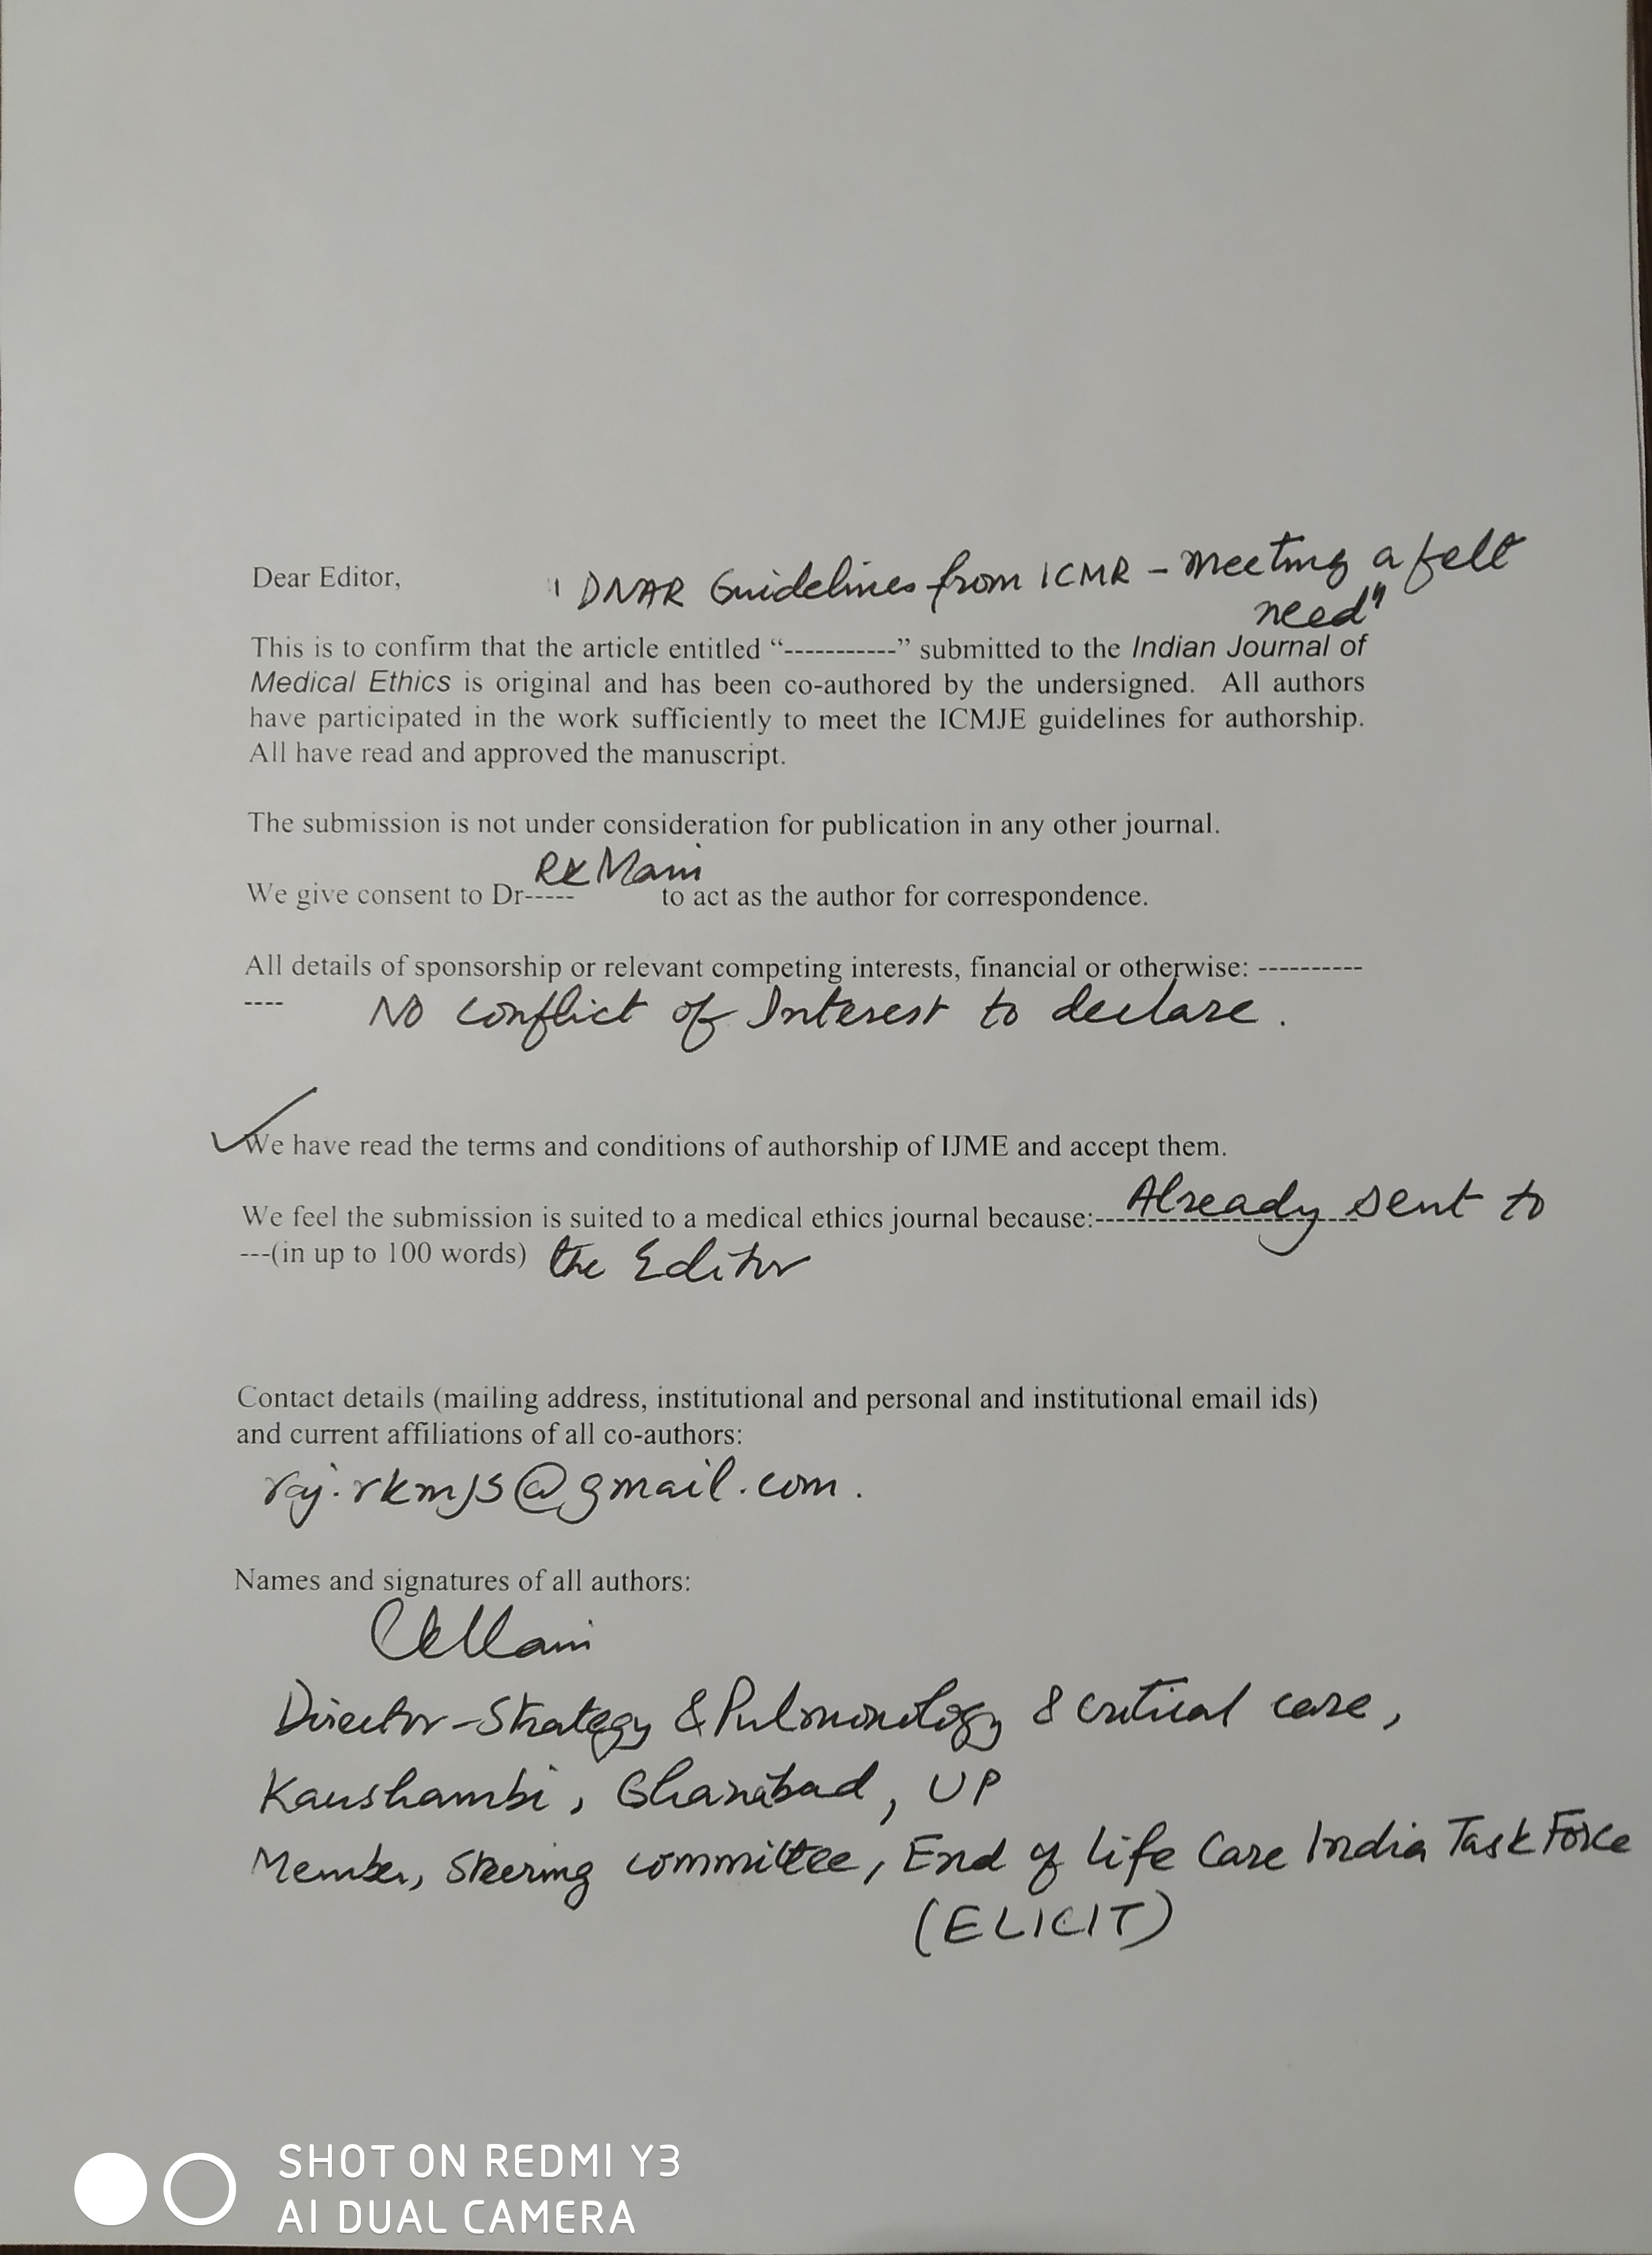 Dear Editor,
" DNAR Guidelines from ICMR – Meeting a felt
need"
This is to confirm that the article entitled “-----------” submitted to the Indian Journal of
Medical Ethics is original and has been co-authored by the undersigned. All authors
have participated in the work sufficiently to meet the ICMJE guidelines for authorship.
All have read and approved the manuscript.
The submission is not under consideration for publication in any other journal.
RK Mani
We give consent to Dr----- to act as the author for correspondence.
All details of sponsorship or relevant competing interests, financial or otherwise: ----------
---- NO conflict of Interest to declare.
We have read the terms and conditions of authorship of IJME and accept them.
We feel the submission is suited to a medical ethics journal because:-------------------- Already sent to
---(in up to 100 words) the Editor
Contact details (mailing address, institutional and personal and institutional email ids)
and current affiliations of all co-authors:
Names and signatures of all authors:
Director-Strategy & Pulmonology & critical care,
Kaushambi, Ghaziabad, UP
Member, Steering committee, End of Life Care India Task Force
(ELICIT)
SHOT ON REDMI Y3
AI DUAL CAMERA